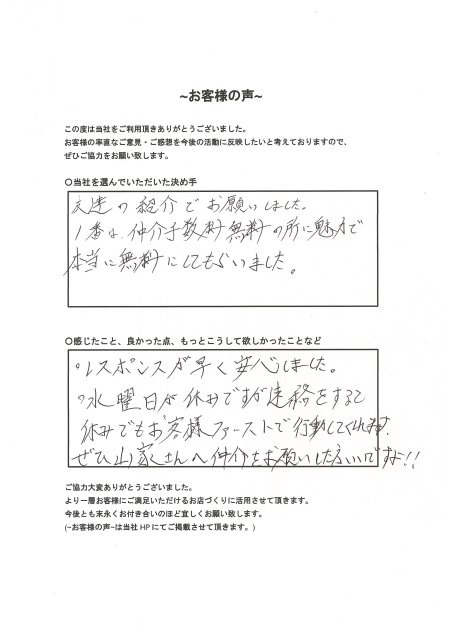 ~お客様の声~
この度は当社をご利用頂きありがとうございました。
お客様の率直なご意見・ご感想を今後の活動に反映したいと考えておりますので、
ぜひご協力をお願い致します。
○当社を選んでいただいた決め手
友達の紹介でお願いしました。
1番は、仲介手数料無料の所に魅力で
本当に無料にしてもらいました。
○感じたこと、良かった点、もっとこうして欲しかったことなど
・レスポンスが早く安心しました。
・水曜日が休みですが連絡をすると
休みでもお客様ファーストで行動してくれます。
ぜひ山家さんへ仲介をお願いした方いいですよ!!
ご協力大変ありがとうございました。
より一層お客様にご満足いただけるお店づくりに活用させて頂きます。
今後とも末永くお付き合いのほど宜しくお願い致します。
(~お客様の声~は当社 HP にてご掲載させて頂きます。)